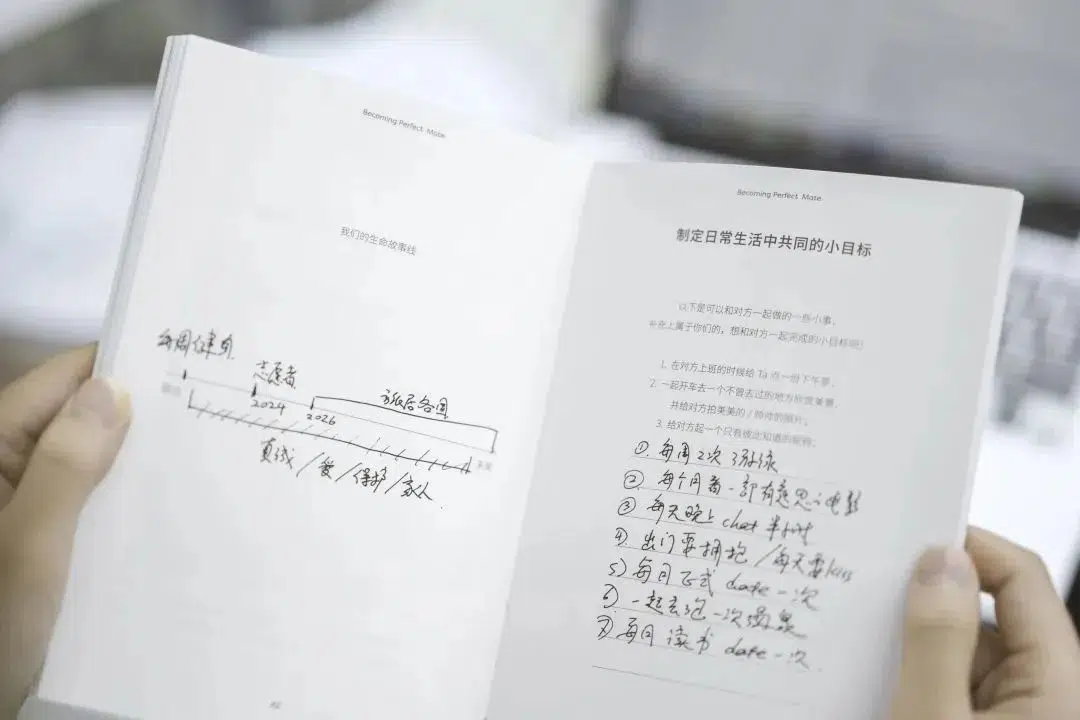 Becoming Perfect Mate
我们的生命故事线
每周健身
志愿者
2024
2026
旅居各国
未来
真诚/爱/保护/家人
Becoming Perfect Mate
制定日常生活中共同的小目标
以下是可以和对方一起做的一些小事,
补充上属于你们的,想和对方一起完成的小目标吧!
1. 在对方上班的时候给 Ta 点一份下午茶。
2. 一起开车去一个不曾去过的地方欣赏美景,
并给对方拍美美的 / 帅帅的照片。
3. 给对方起一个只有彼此知道的昵称。
①. 每周2次游泳
② 每个月看一部有意思的电影
③ 每天晚上 chat 半小时
④. 出门要拥抱 / 每天要kiss
5) 每月正式 date 一次
6). 一起去泡一次温泉
7). 每月 读书 date 一次